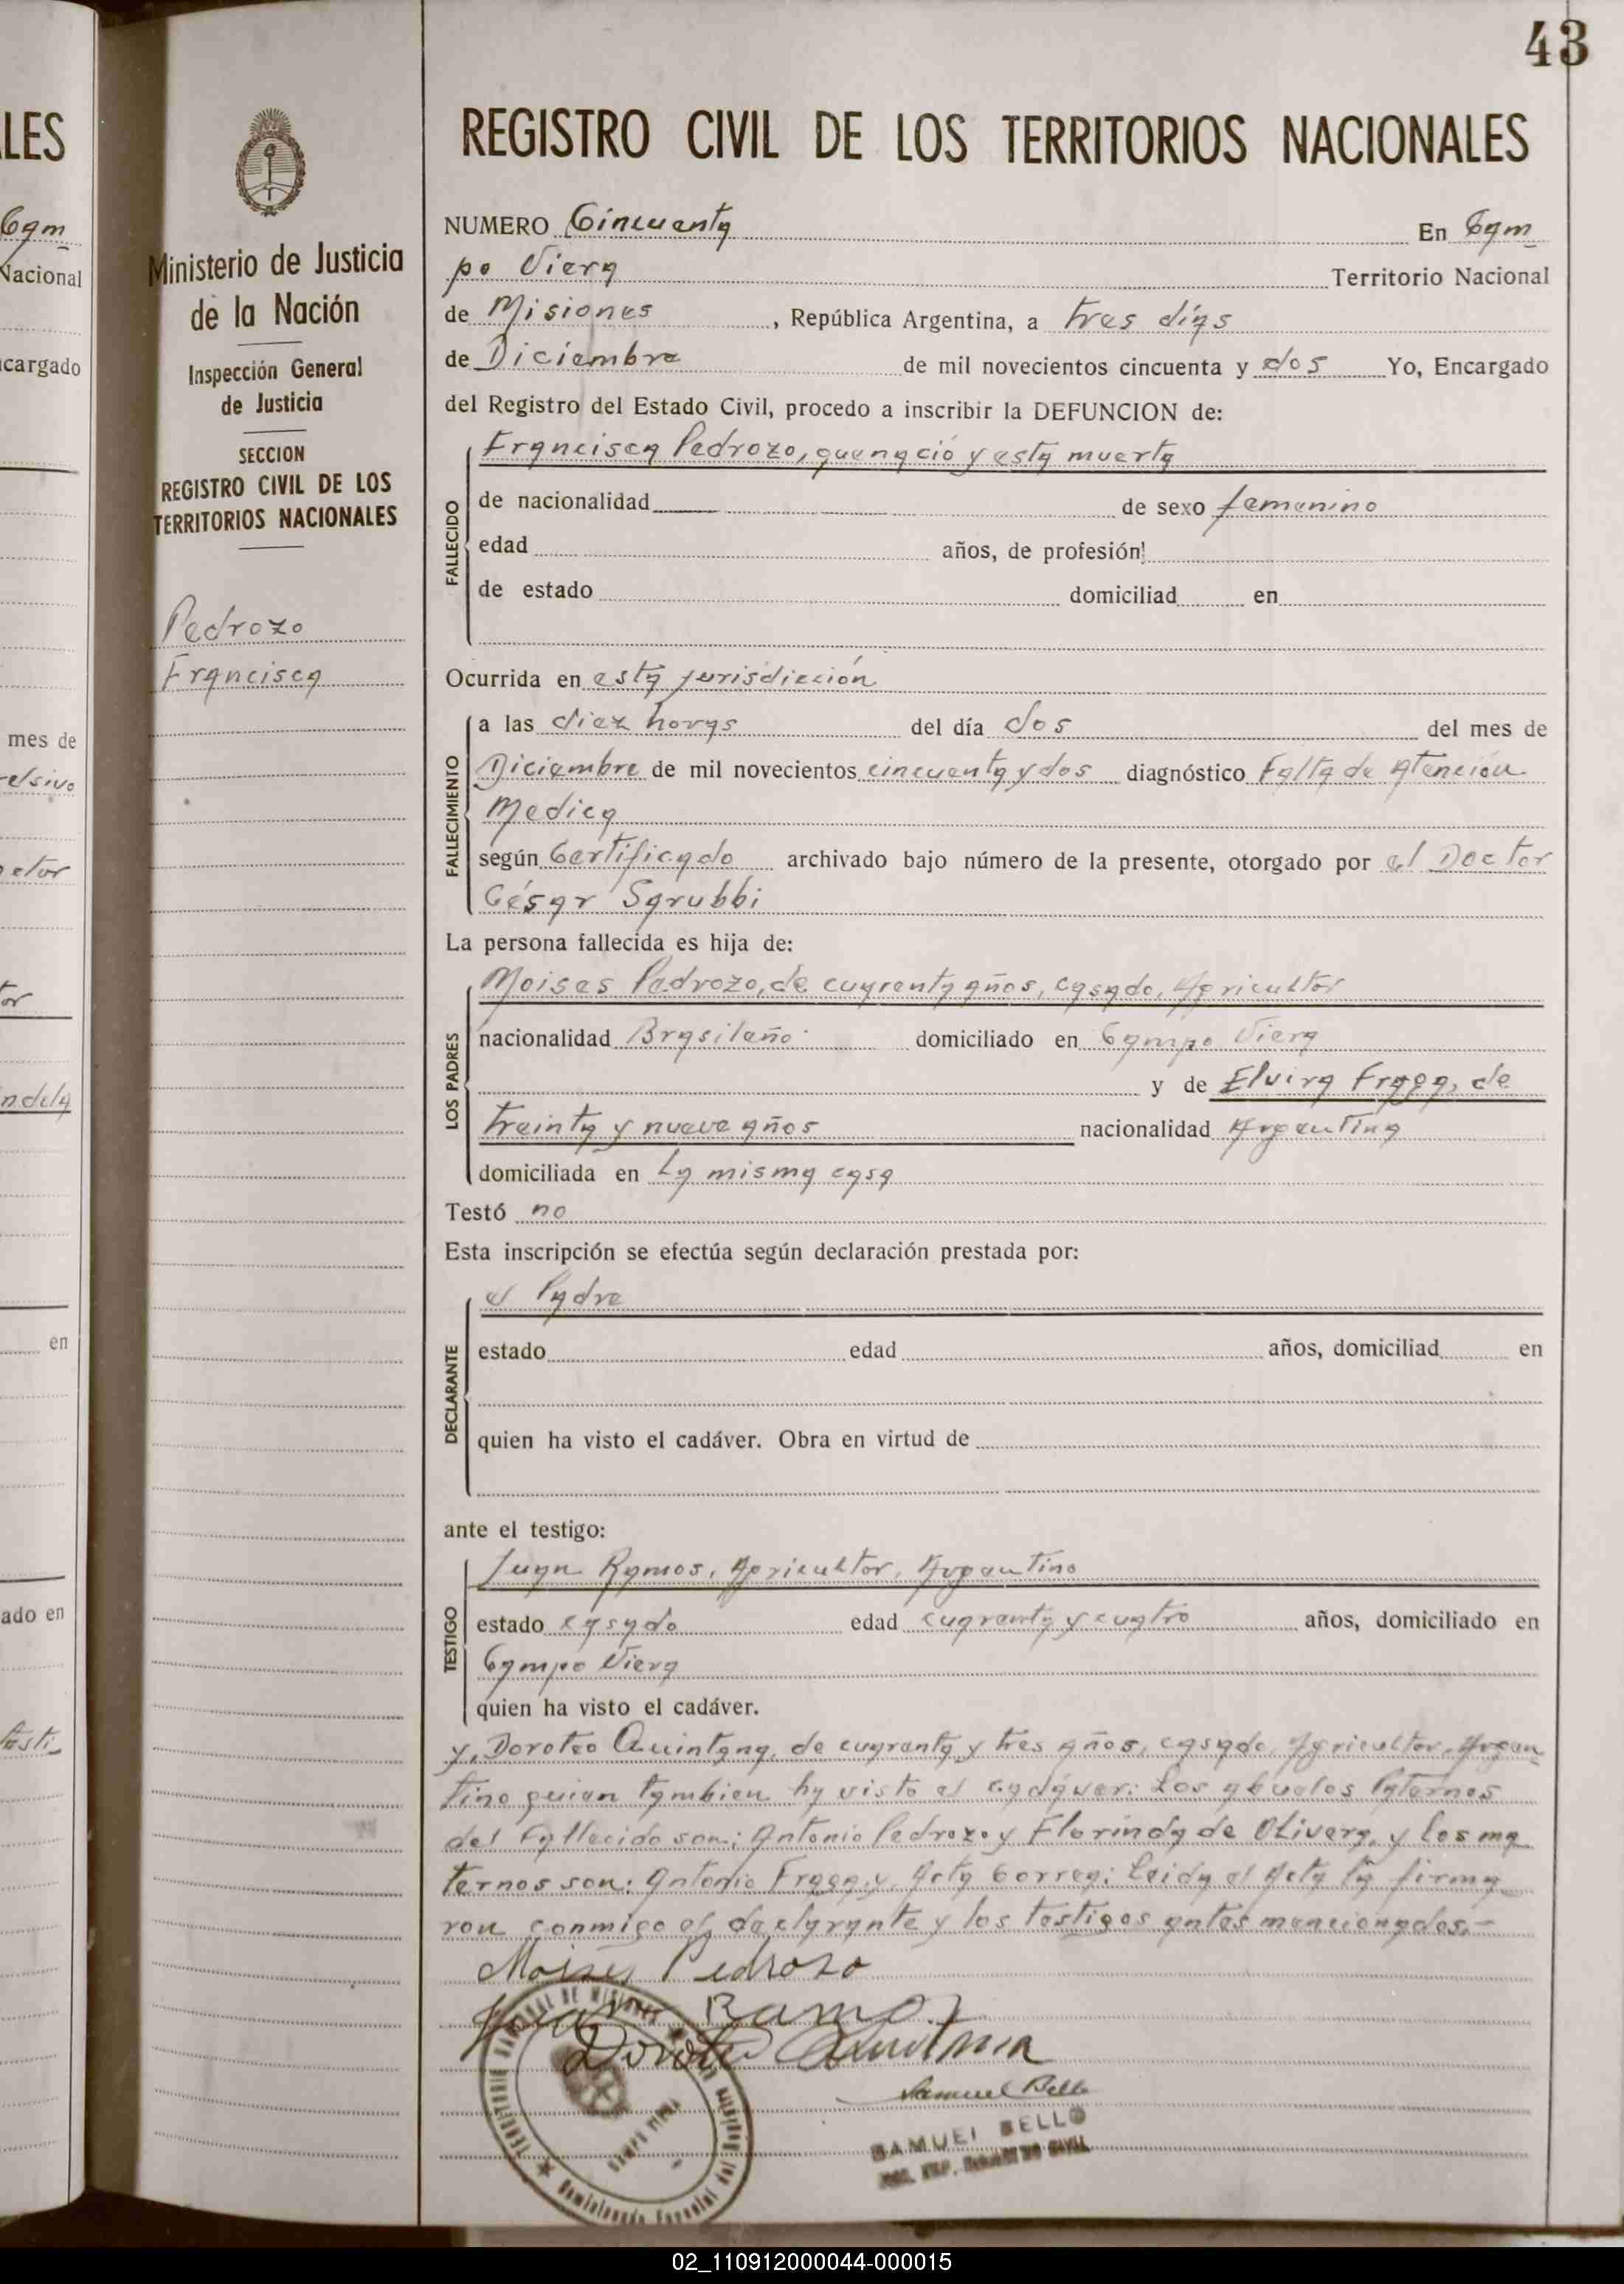 43
LES
Cam
Nacional
cargado
mes de
elsivo
ctor
tor
ndela
en
ado en
testi
Ministerio de Justicia
de la Nación
Inspección General
de Justicia
SECCION
REGISTRO CIVIL DE LOS
TERRITORIOS NACIONALES
Pedrozo
Francisca
REGISTRO CIVIL DE LOS TERRITORIOS NACIONALES
NUMERO Cincuenta En Cam
po Viera Territorio Nacional
de Misiones, República Argentina, a tres días
de Diciembre de mil novecientos cincuenta y dos Yo, Encargado
del Registro del Estado Civil, procedo a inscribir la DEFUNCION de:
FALLECIDO
Francisca Pedrozo, que nació y esta muerta
de nacionalidad de sexo femenino
edad años, de profesión
de estado domiciliad en
Ocurrida en esta jurisdicción
FALLECIMIENTO
a las diez horas del día dos del mes de
Diciembre de mil novecientos cincuenta y dos diagnóstico Falta de Atención
Medica
según Certificado archivado bajo número de la presente, otorgado por el Doctor
César Sarubbi
La persona fallecida es hija de:
LOS PADRES
Moises Pedrozo, de cuarenta años, casado, Agricultor
nacionalidad Brasileño domiciliado en Campo Viera
y de Elvira Fraga, de
treinta y nueve años nacionalidad Argentina
domiciliada en La misma casa
Testó no
Esta inscripción se efectúa según declaración prestada por:
DECLARANTE
el Padre
estado edad años, domiciliad en
quien ha visto el cadáver. Obra en virtud de
ante el testigo:
TESTIGO
Juan Ramos, Agricultor, Argentino
estado casado edad cuarenta y cuatro años, domiciliado en
Campo Viera
quien ha visto el cadáver.
y, Doroteo Quintana, de cuarenta y tres años, casado, Agricultor, Argen
tino quien tambien ha visto el cadáver: Los abuelos Paternos
del Fallecido son: Antonio Pedrozo y Florinda de Olivera, y los ma
ternos son: Antonio Fraga, y Correa: Leida el Acta la firma
ron conmigo el declarante y los testigos antes mencionados,-
Moises Pedroso
Juan Ramos
Doroteo Quintana
Samuel Bello
SAMUEL BELLO
TERRITORIO NACIONAL DE MISIONES
CAMPO VIERA
02_110912000044-000015